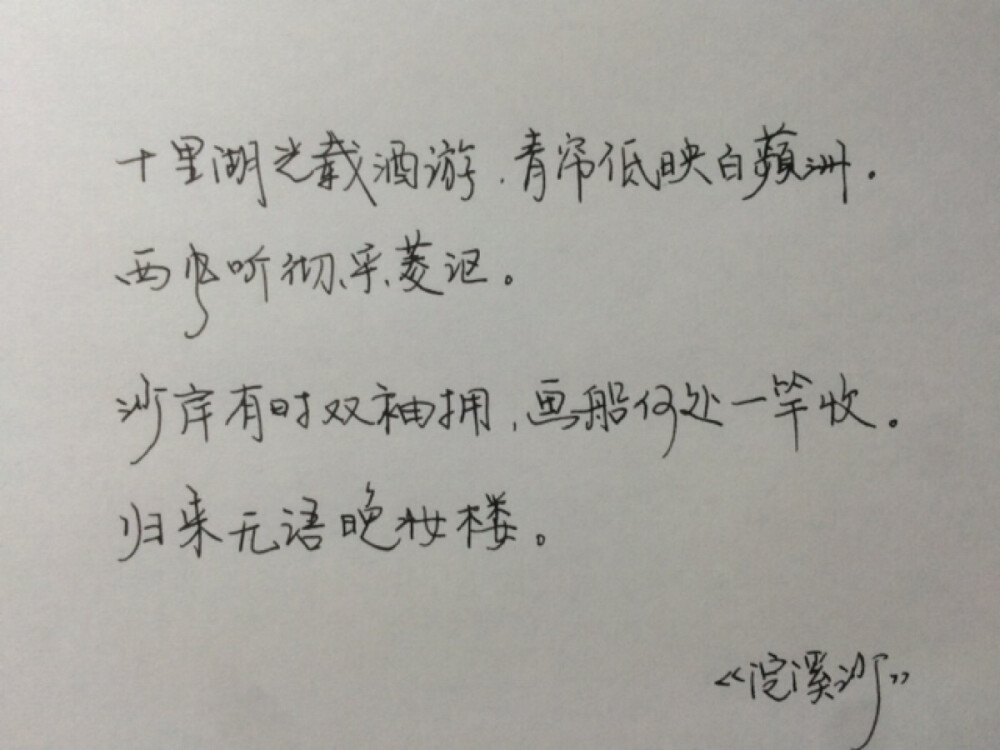 十里湖光载酒游,青帘低映白蘋洲。
西风听彻采菱讴。
沙岸有时双袖拥,画船何处一竿收。
归来无语晚妆楼。
《浣溪沙》